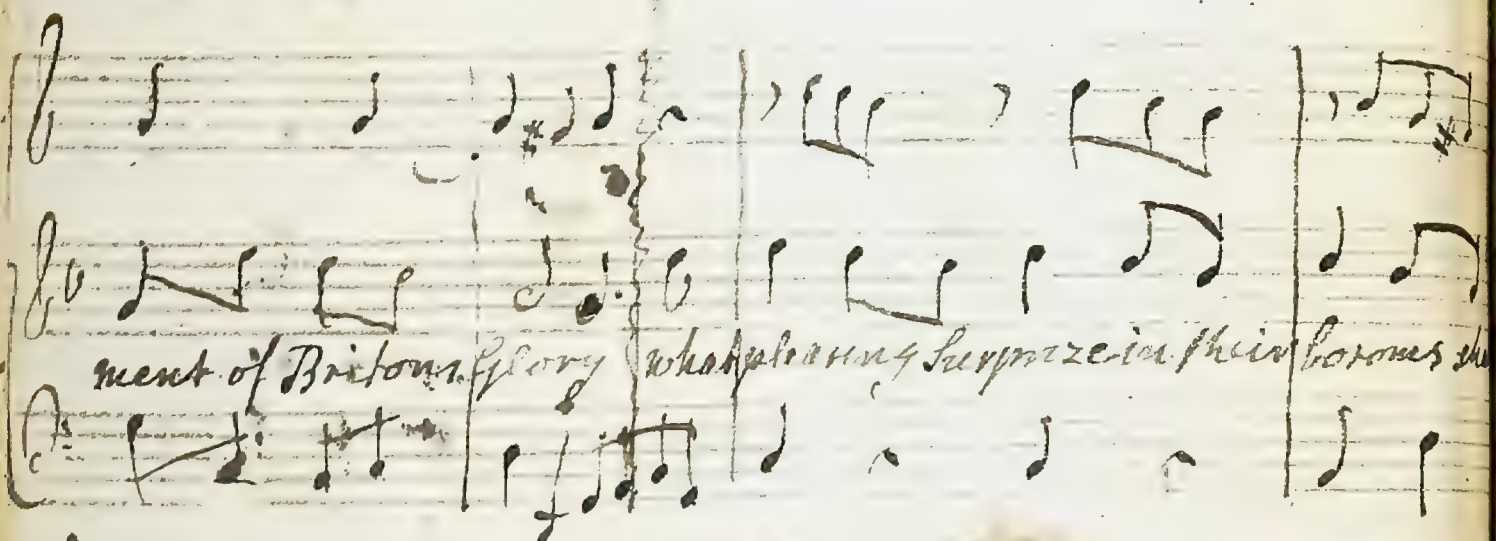 ment of Britons Glory what pleasing Surprize in their bosoms